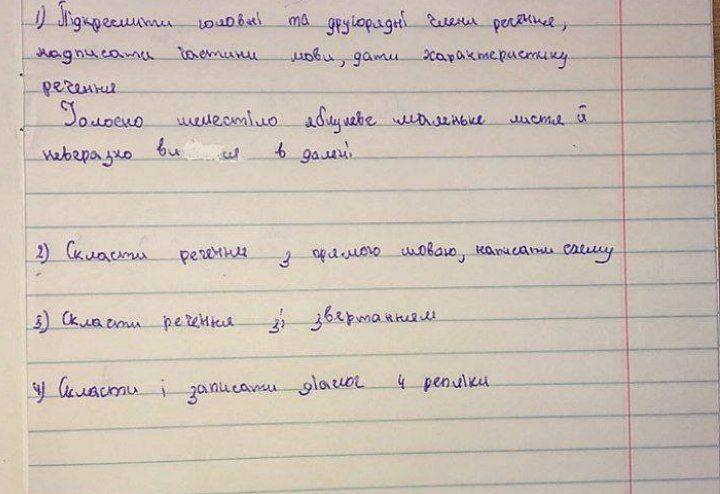 1) Підкреслити головні та другорядні члени речення,
надписати частини мови, дати характеристику
речення
Голосно шелестіло яблуневе маленьке листя й
невиразно в далені
2) Скласти речення з прямою мовою, написати схему
3) Скласти речення зі звертанням
4) Скласти і записати діалог 4 репліки